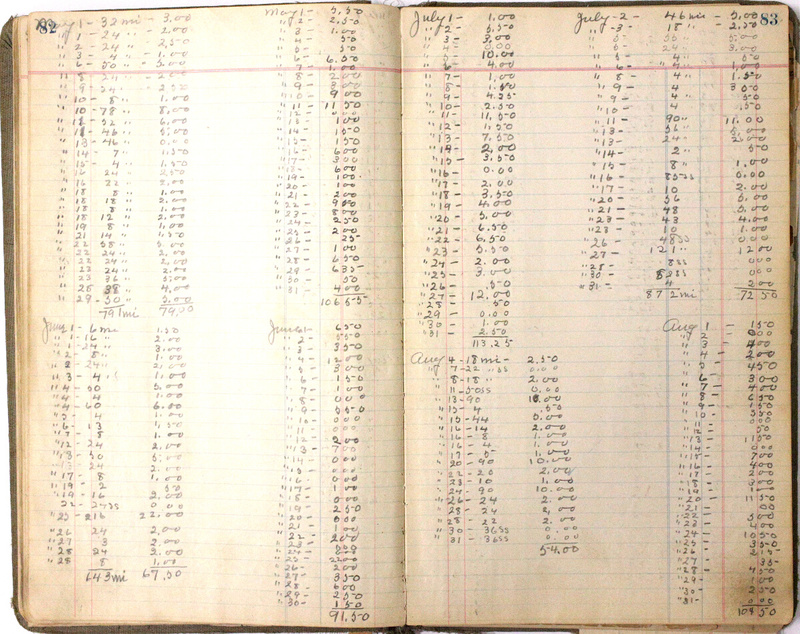 82
May 1 - 32 mi - 3.00
" 1 - 24 " - 2.00
" 2 - 24 " - 2.50
" 3 - 4 " - 1.50
" 6 - 50 " - 5.00
" 8 24 "
" 9 - 24 " 2.50
" 10 - 8 " 1.00
" 10 - 78 " 8.00
" 12 - 52 " 6.00
" 12 - 46 " 5.00
" 13 - 46 " 0.00
" 14 - 7 " 1.50
" 15 - 4 " 1.50
" 16 24 2.50
" 16 22 2.00
" 18 8 1.00
" 18 18 2.00
" 18 8 1.00
" 18 12 2.00
" 19 8 1.00
" 21 14 1.50
" 22 58 5.00
" 22 24 2.00
" 22 24 2.00
" 23 24 2.00
" 23 36 3.00
" 28 38 4.00
" 29 - 50 " 5.00
791 mi 79.00
June 1 - 6 mi 1.50
" 1 - 16 " 2.00
" 2 - 24 " 3.00
" 2 - 8 " 1.00
" 2 - 24 " 2.00
" 3 - 4 " 1.00
" 4 - 50 5.00
" 4 - 8 1.00
" 4 - 60 6.00
" 5 - 4 1.00
" 6 - 13 1.50
" 7 - 8 1.00
" 12 - 24 2.00
" 13 - 50 5.00
" 13 24 2.00
" 17 - 8 1.00
" 19 - 2 50
" 19 - 16 2.00
" 22 - 27 ss 0.00
" 25 - 216 22.00
" 26 24 2.00
" 27 3 2.00
" 28 24 2.00
" 28 8 1.00
643 mi 67.50
May 1 - 5.50
" 2 - 2.50
" 3 - 1.00
" 4 - 50
" 5 - 50
" 6 - 6.50
" 7 - 1.00
" 8 - 2.00
" 9 - 3.00
" 10 - 9.00
" 11 - 11.50
" 12 - 00
" 13 - 1.00
" 14 - 1.50
" 15 - 1.50
" 16 - 6.00
" 17 - 3.00
" 18 - 6.00
" 19 - 1.00
" 20 - 1.00
" 21 - 2.00
" 22 - 9.00
" 23 - 8.00
" 24 - 2.50
" 25 - 2.00
" 26 - 25
" 27 - 1.00
" 28 - 6.50
" 29 - 6.35
" 30 - 50
" 31 - 4.00
106.55
June 1 - 6.50
" 2 - 5.50
" 3 - 3.50
" 4 - 12.00
" 5 - 3.00
" 6 - 1.50
" 7 - 1.00
" 8 - 0.00
" 9 - 5.50
" 10 - 0.00
" 11 - 0.00
" 12 - 2.00
" 13 - 7.00
" 14 - 0.00
" 15 - 0.00
" 16 - 0.00
" 17 - 1.00
" 18 - 0.00
" 19 - 2.50
" 20 - 0.00
" 21 - 1.00
" 22 - 2.00
" 23 - 0.00
" 24 - 0.00
" 25 - 22.00
" 26 - 2.00
" 27 - 3.50
" 28 - 6.00
" 29 - 2.50
" 30 - 1.50
91.50
July 1 - 1.00
" 2 5.50
" 3 - 3.00
" 4 - 0.00
" 5 - 10.00
" 6 - 4.00
" 7 - 1.00
" 8 - 1.50
" 9 - 4.25
" 10 - 2.50
" 11 - 11.50
" 12 - 1.50
" 13 - 7.50
" 14 - 2.00
" 15 - 3.50
" 16 - 0.00
" 17 - 2.00
" 18 - 3.50
" 19 - 4.00
" 20 - 5.00
" 21 - 6.50
" 22 - 6.50
" 23 - 5.50
" 24 - 2.00
" 25 - 3.00
" 26 - 50
" 27 - 12.00
" 28 - 50
" 29 - 0.00
" 30 - 1.00
" 31 2.50
113.25
Aug 4 - 18 mi - 2.50
" 7 - 22 " ss 0.00
" 8 - 18 " 2.00
" 11 - 50 ss 0.00
" 13 - 90 10.00
" 15 - 4 .50
" 15 - 44 5.00
" 16 - 14 2.00
" 16 - 8 1.00
" 16 - 4 1.00
" 17 - 5 1.00
" 20 - 90 10.00
" 22 - 20 2.00
" 23 - 10 1.00
" 24 - 90 10.00
" 26 - 24 2.00
" 28 - 24 2.00
" 28 - 22 2.00
" 30 - 36 ss 0.00
" 31 - 36 ss 0.00
54.00
83
July - 2 - 46 mi - 5.00
" - 3 - 18 " 2.50
" 5 - 56 5.00
" 5 - 24 3.00
" 5 - 4 " 50
" 6 - 4 " 1.00
" 8 - 4 " 1.50
" 9 - 4 3.50
" 9 - 4 50
" 10 - 4 .50
" 11 - 90 " 11.00
" 13 - 56 5.00
" 13 - 24 2.00
" 14 - 2 " 50
" 15 - 8 1.00
" 16 - 85 ss 0.00
" 17 - 10 2.00
" 20 - 56 5.00
" 21 - 48 5.00
" 23 - 43 4.00
" 23 - 10 1.00
" 26 - 48 ss 0.00
" 27 - 121 " 12.00
" 28 - 8 ss 0.00
" 30 - 8 ss 0.00
" 31 - 4 2.00
872 mi 72.50
Aug 1 - 1.50
" 2 0.00
" 3 - 4.00
" 4 - 2.00
" 5 4.50
" 6 3.00
" 7 - 4.00
" 8 - 6.50
" 9 - 1.50
" 10 - 5.50
" 11 - 00
" 12 50
" 13 - 11.50
" 14 - 00
" 15 - 7.00
" 16 - 4.00
" 17 - 2.00
" 18 - 3.00
" 19 - 1
" 20 - 11.50
" 21 - 00
" 22 - 5.00
" 23 - 4.00
" 24 - 10.50
" 25 - 3.50
" 26 - 2.15
" 27 - 35
" 28 - 4.50
" 29 - 1.00
" 30 - 00
" 31 - 0.00
108.50